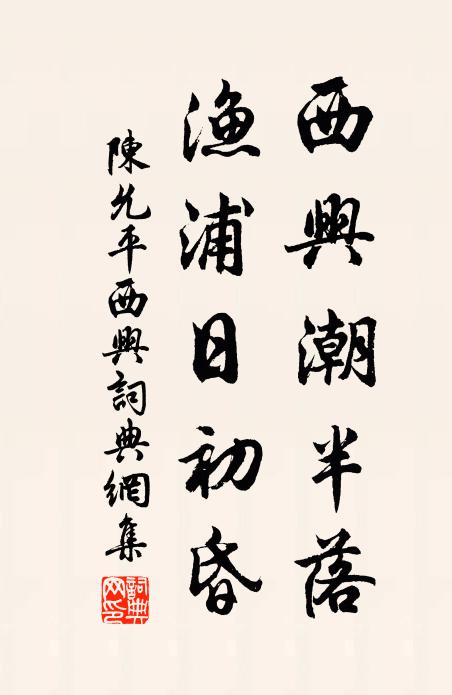 西興潮半落
漁浦日初昏
陳允平西興詞典網集
詞典網印